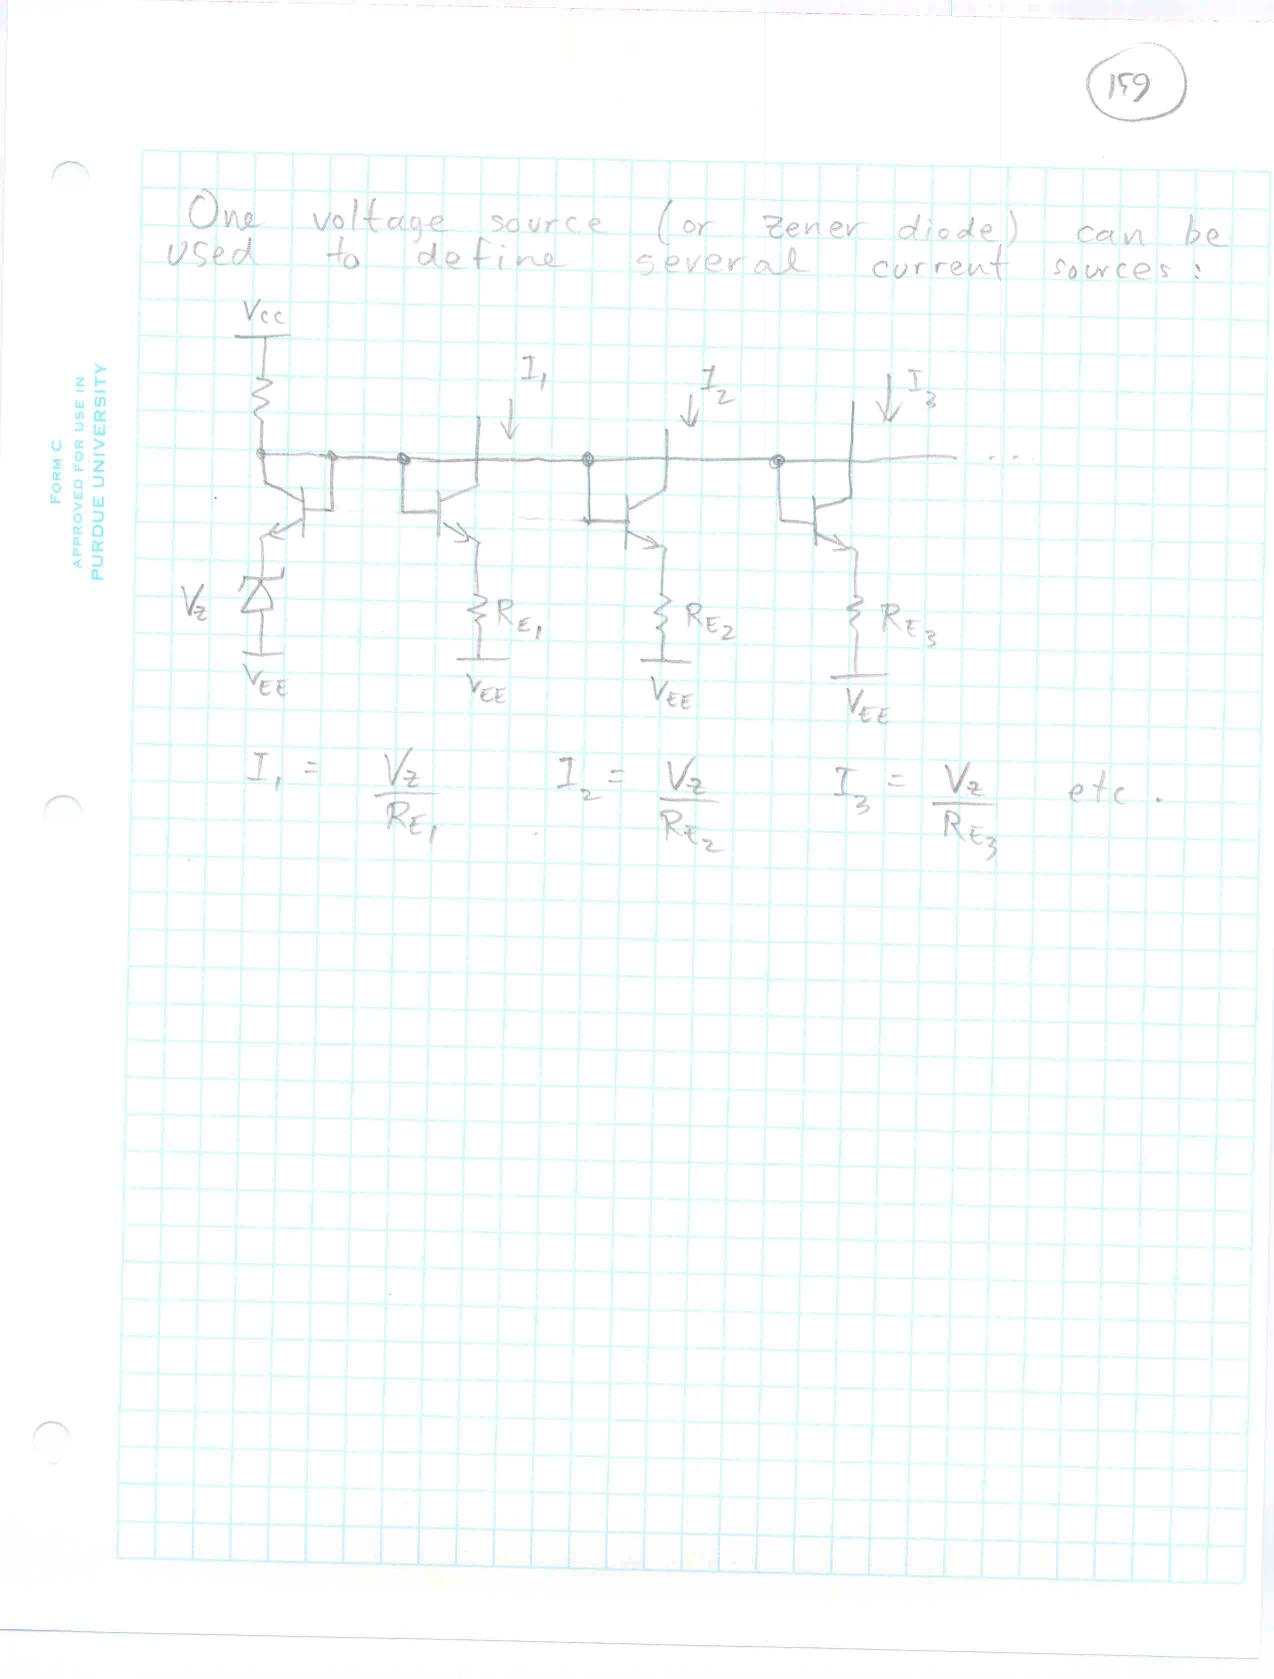 159
FORM C
APPROVED FOR USE IN
PURDUE UNIVERSITY
One voltage source (or zener diode) can be
used to define several current sources:
Vcc
I1
I2
I3
...
Vz
RE1
RE2
RE3
VEE
VEE
VEE
VEE
I1 = Vz/RE1 I2 = Vz/RE2 I3 = Vz/RE3 etc.